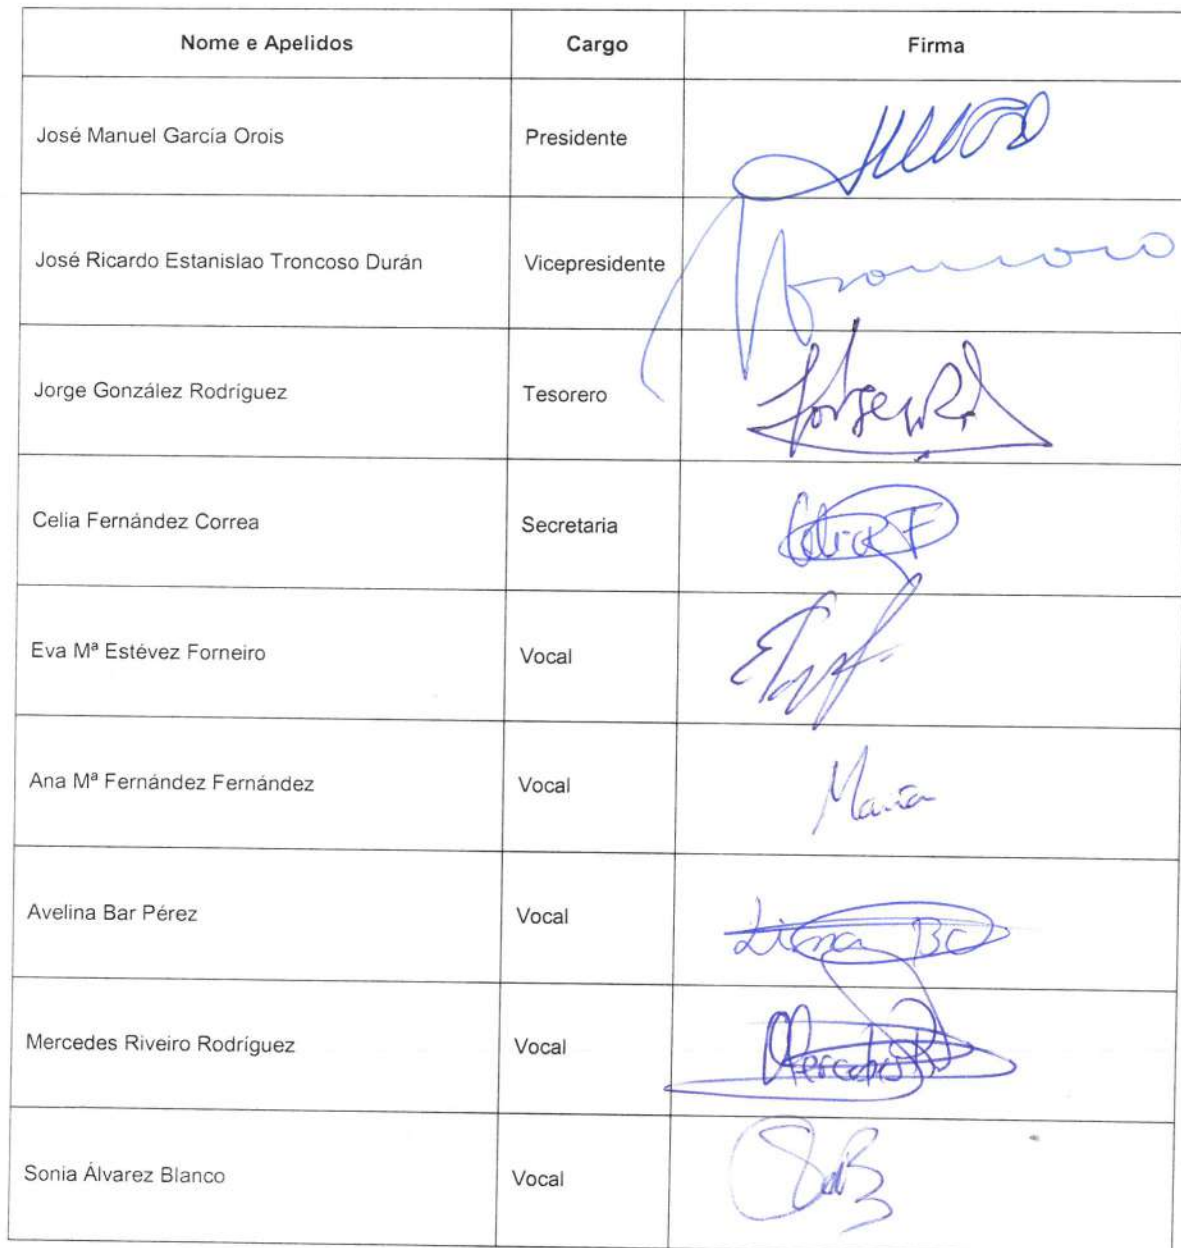 Nome e Apelidos Cargo Firma
José Manuel García Orois Presidente
José Ricardo Estanislao Troncoso Durán Vicepresidente
Jorge González Rodríguez Tesorero Jorge
Celia Fernández Correa Secretaria Celia F
Eva Mª Estévez Forneiro Vocal
Ana Mª Fernández Fernández Vocal María
Avelina Bar Pérez Vocal
Mercedes Riveiro Rodríguez Vocal Mercedes
Sonia Álvarez Blanco Vocal